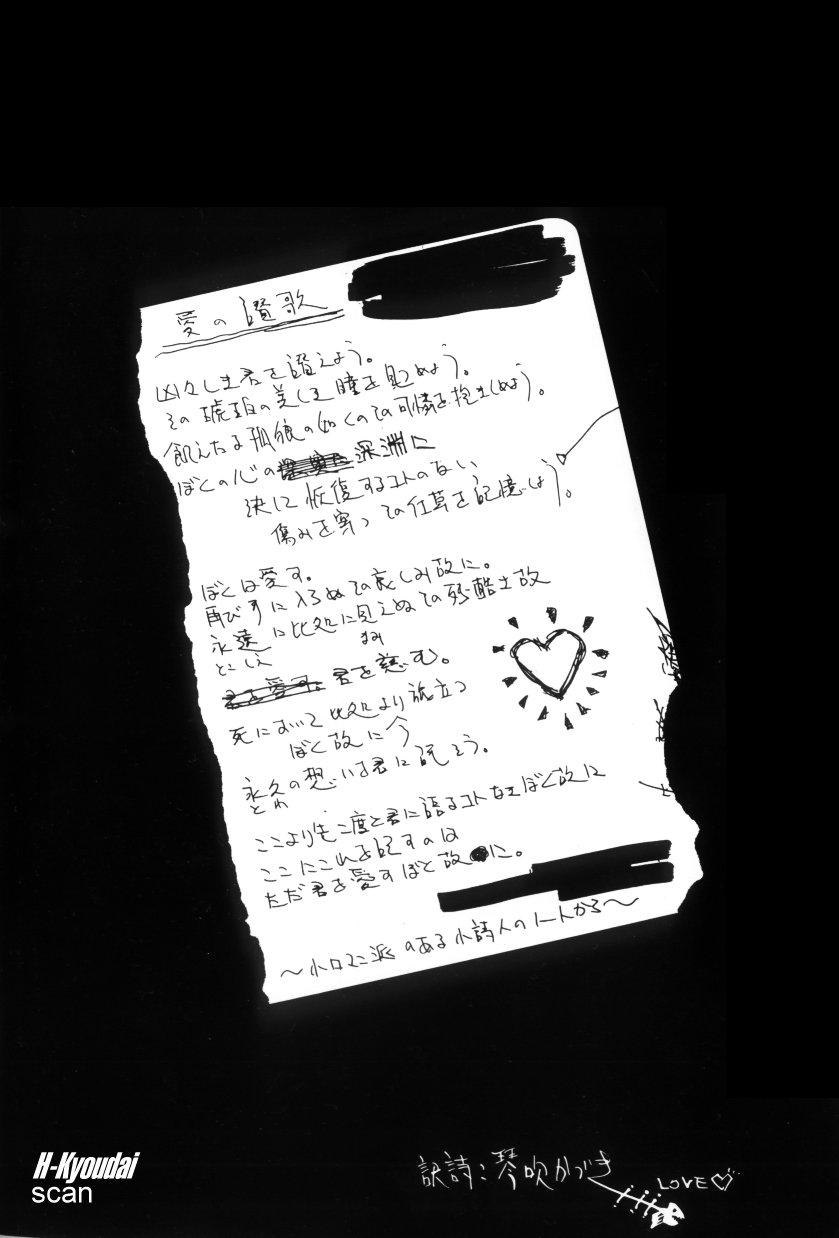 愛の讃歌
凶々しき君を讃えよう。
その琥珀の美しき瞳を見つめよう。
飢えたる孤狼の如くのその可憐を抱きしめよう。
ぼくの心の 深淵に
決して恢復するコトのない
傷みを穿つその仕草を記憶しよう。
ぼくは愛す。
再び手に入らぬその哀しみ故に。
永遠に此処に見えぬその残酷さ故
とこしえ まみ
君を愛す。君を慈む。
死において此処より旅立つ
ぼく故に今
永久の想いを君に託そう。
とわ
ここよりも二度と君に語るコトなきぼく故に
ここにこれを記すのは
ただ君を愛すぼく故に。
〜小ロマン派のある小詩人のノートから〜
訳詩：琴吹かづき
LOVE♡
H-Kyoudai
scan